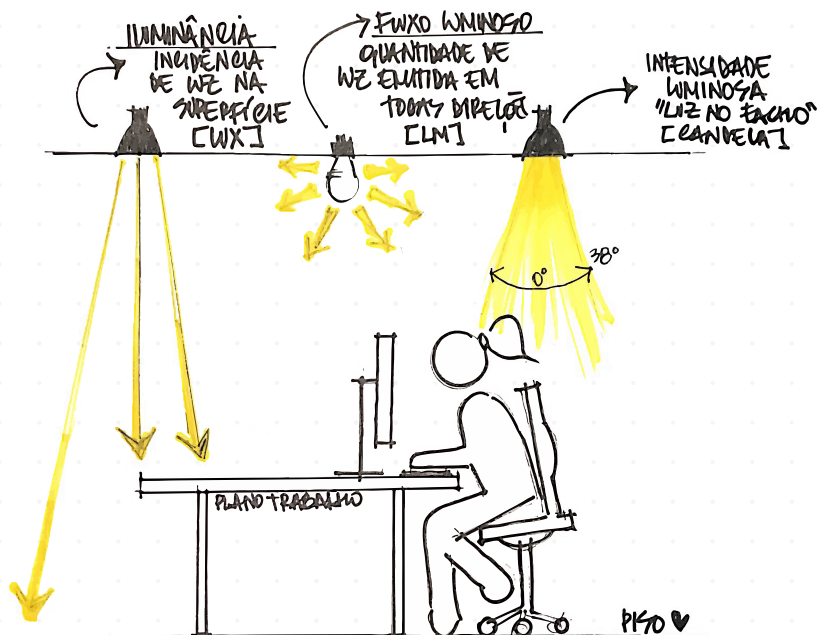 ILUMINÂNCIA
INCIDÊNCIA
DE LUZ NA
SUPERFÍCIE
[LUX]
FLUXO LUMINOSO
QUANTIDADE DE
LUZ EMITIDA EM
TODAS DIREÇÕ
[LM]
INTENSIDADE
LUMINOSA
"LUZ NO FACHO"
[CANDELA]
38°
0°
PLANO TRABALHO
PISO ♥